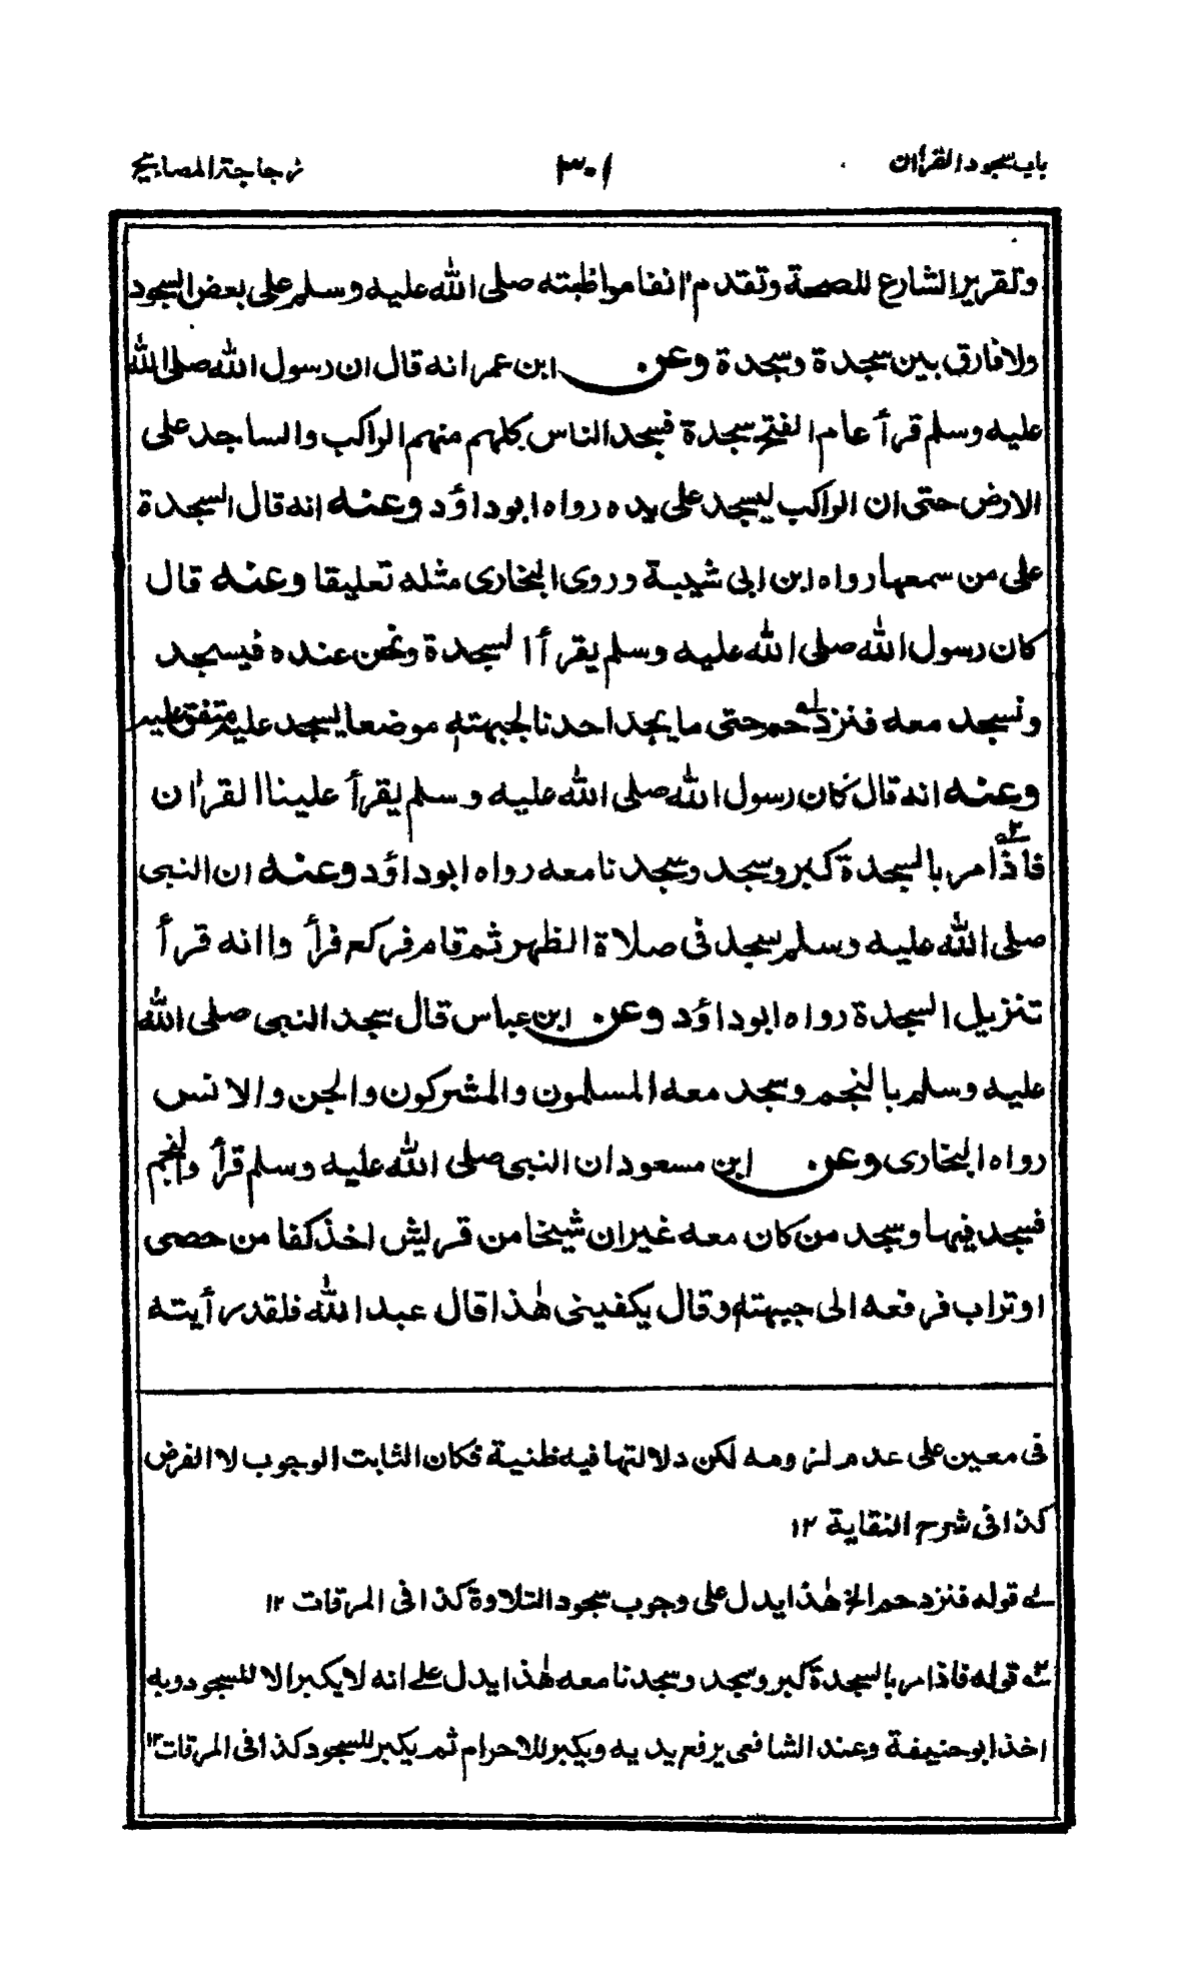 باب سجود القرآن ٣٠١ زجاجة المصابيح
وتقرير الشارع للصحة وتقدم آنفا مواظبته صلى الله عليه وسلم على بعض السجود
ولا فارق بين سجدة وسجدة وعن ابن عمر انه قال ان رسول الله صلى الله
عليه وسلم قرأ عام الفتح سجدة فسجد الناس كلهم منهم الراكب والساجد على
الارض حتى ان الراكب ليسجد على يده رواه ابو داؤد وعنه انه قال السجدة
على من سمعها رواه ابن ابى شيبة وروى البخارى مثله تعليقا وعنه قال
كان رسول الله صلى الله عليه وسلم يقرأ السجدة ونحن عنده فيسجد
ونسجد معه فنزدحم حتى ما يجد احدنا لجبهته موضعا يسجد عليه متفق عليه
وعنه انه قال كان رسول الله صلى الله عليه وسلم يقرأ علينا القرآن
فاذا مر بالسجدة كبر وسجد وسجدنا معه رواه ابو داؤد وعنه ان النبى
صلى الله عليه وسلم سجد فى صلاة الظهر ثم قام فركع فرأوا انه قرأ
تنزيل السجدة رواه ابو داؤد وعن ابن عباس قال سجد النبى صلى الله
عليه وسلم بالنجم وسجد معه المسلمون والمشركون والجن والانس
رواه البخارى وعن ابن مسعود ان النبى صلى الله عليه وسلم قرأ والنجم
فسجد فيها وسجد من كان معه غير ان شيخا من قريش اخذ كفا من حصى
او تراب فرفعه الى جبهته وقال يكفينى هٰذا قال عبد الله فلقد رأيته
فى معين على عدم لزومه لكن دلالتها فيه ظنية فكان الثابت الوجوب لا الفرض
كذا فى شرح النقاية ١٢
له قوله فنزدحم الخ هٰذا يدل على وجوب سجود التلاوة كذا فى المرقات ١٢
٢ه قوله فاذا مر بالسجدة كبر وسجد وسجدنا معه هٰذا يدل على انه لا يكبر الا للسجود وبه
اخذ ابو حنيفة وعند الشافعى يرفع يديه ويكبر للاحرام ثم يكبر للسجود كذا فى المرقات ١٢